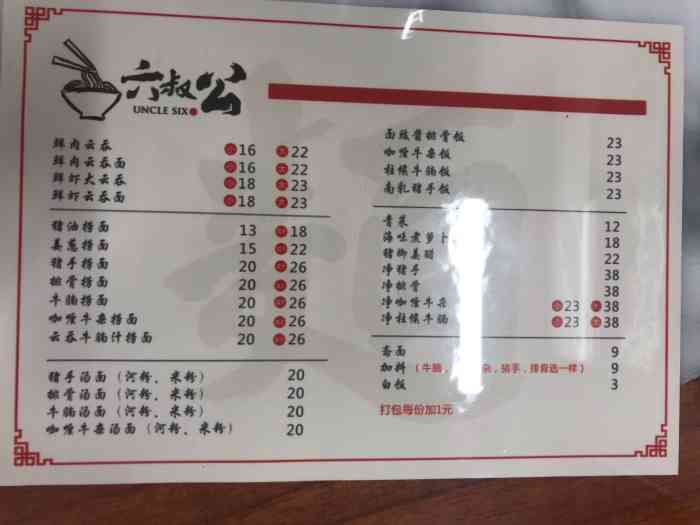 六叔公
UNCLE SIX
鲜肉云吞 小16 大22
鲜肉云吞面 小16 大22
鲜虾大云吞 小18 大23
鲜虾云吞面 小18 大23
猪油捞面 13 大18
姜葱捞面 15 大22
猪手捞面 20 大26
排骨捞面 20 大26
牛腩捞面 20 大26
咖喱牛杂捞面 20 大26
云吞牛腩汁捞面 20 大26
猪手汤面（河粉、米粉） 20
排骨汤面（河粉、米粉） 20
牛腩汤面（河粉、米粉） 20
咖喱牛杂汤面（河粉、米粉） 20
面豉酱排骨饭 23
咖喱牛杂饭 23
柱候牛腩饭 23
南乳猪手饭 23
青菜 12
海味煮萝卜 18
猪脚姜醋 22
净猪手 38
净排骨 38
净咖喱牛杂 小23 大38
净柱候牛腩 小23 大38
斋面 9
加料（牛腩，杂，猪手，排骨选一样） 9
白饭 3
打包每份加1元
面